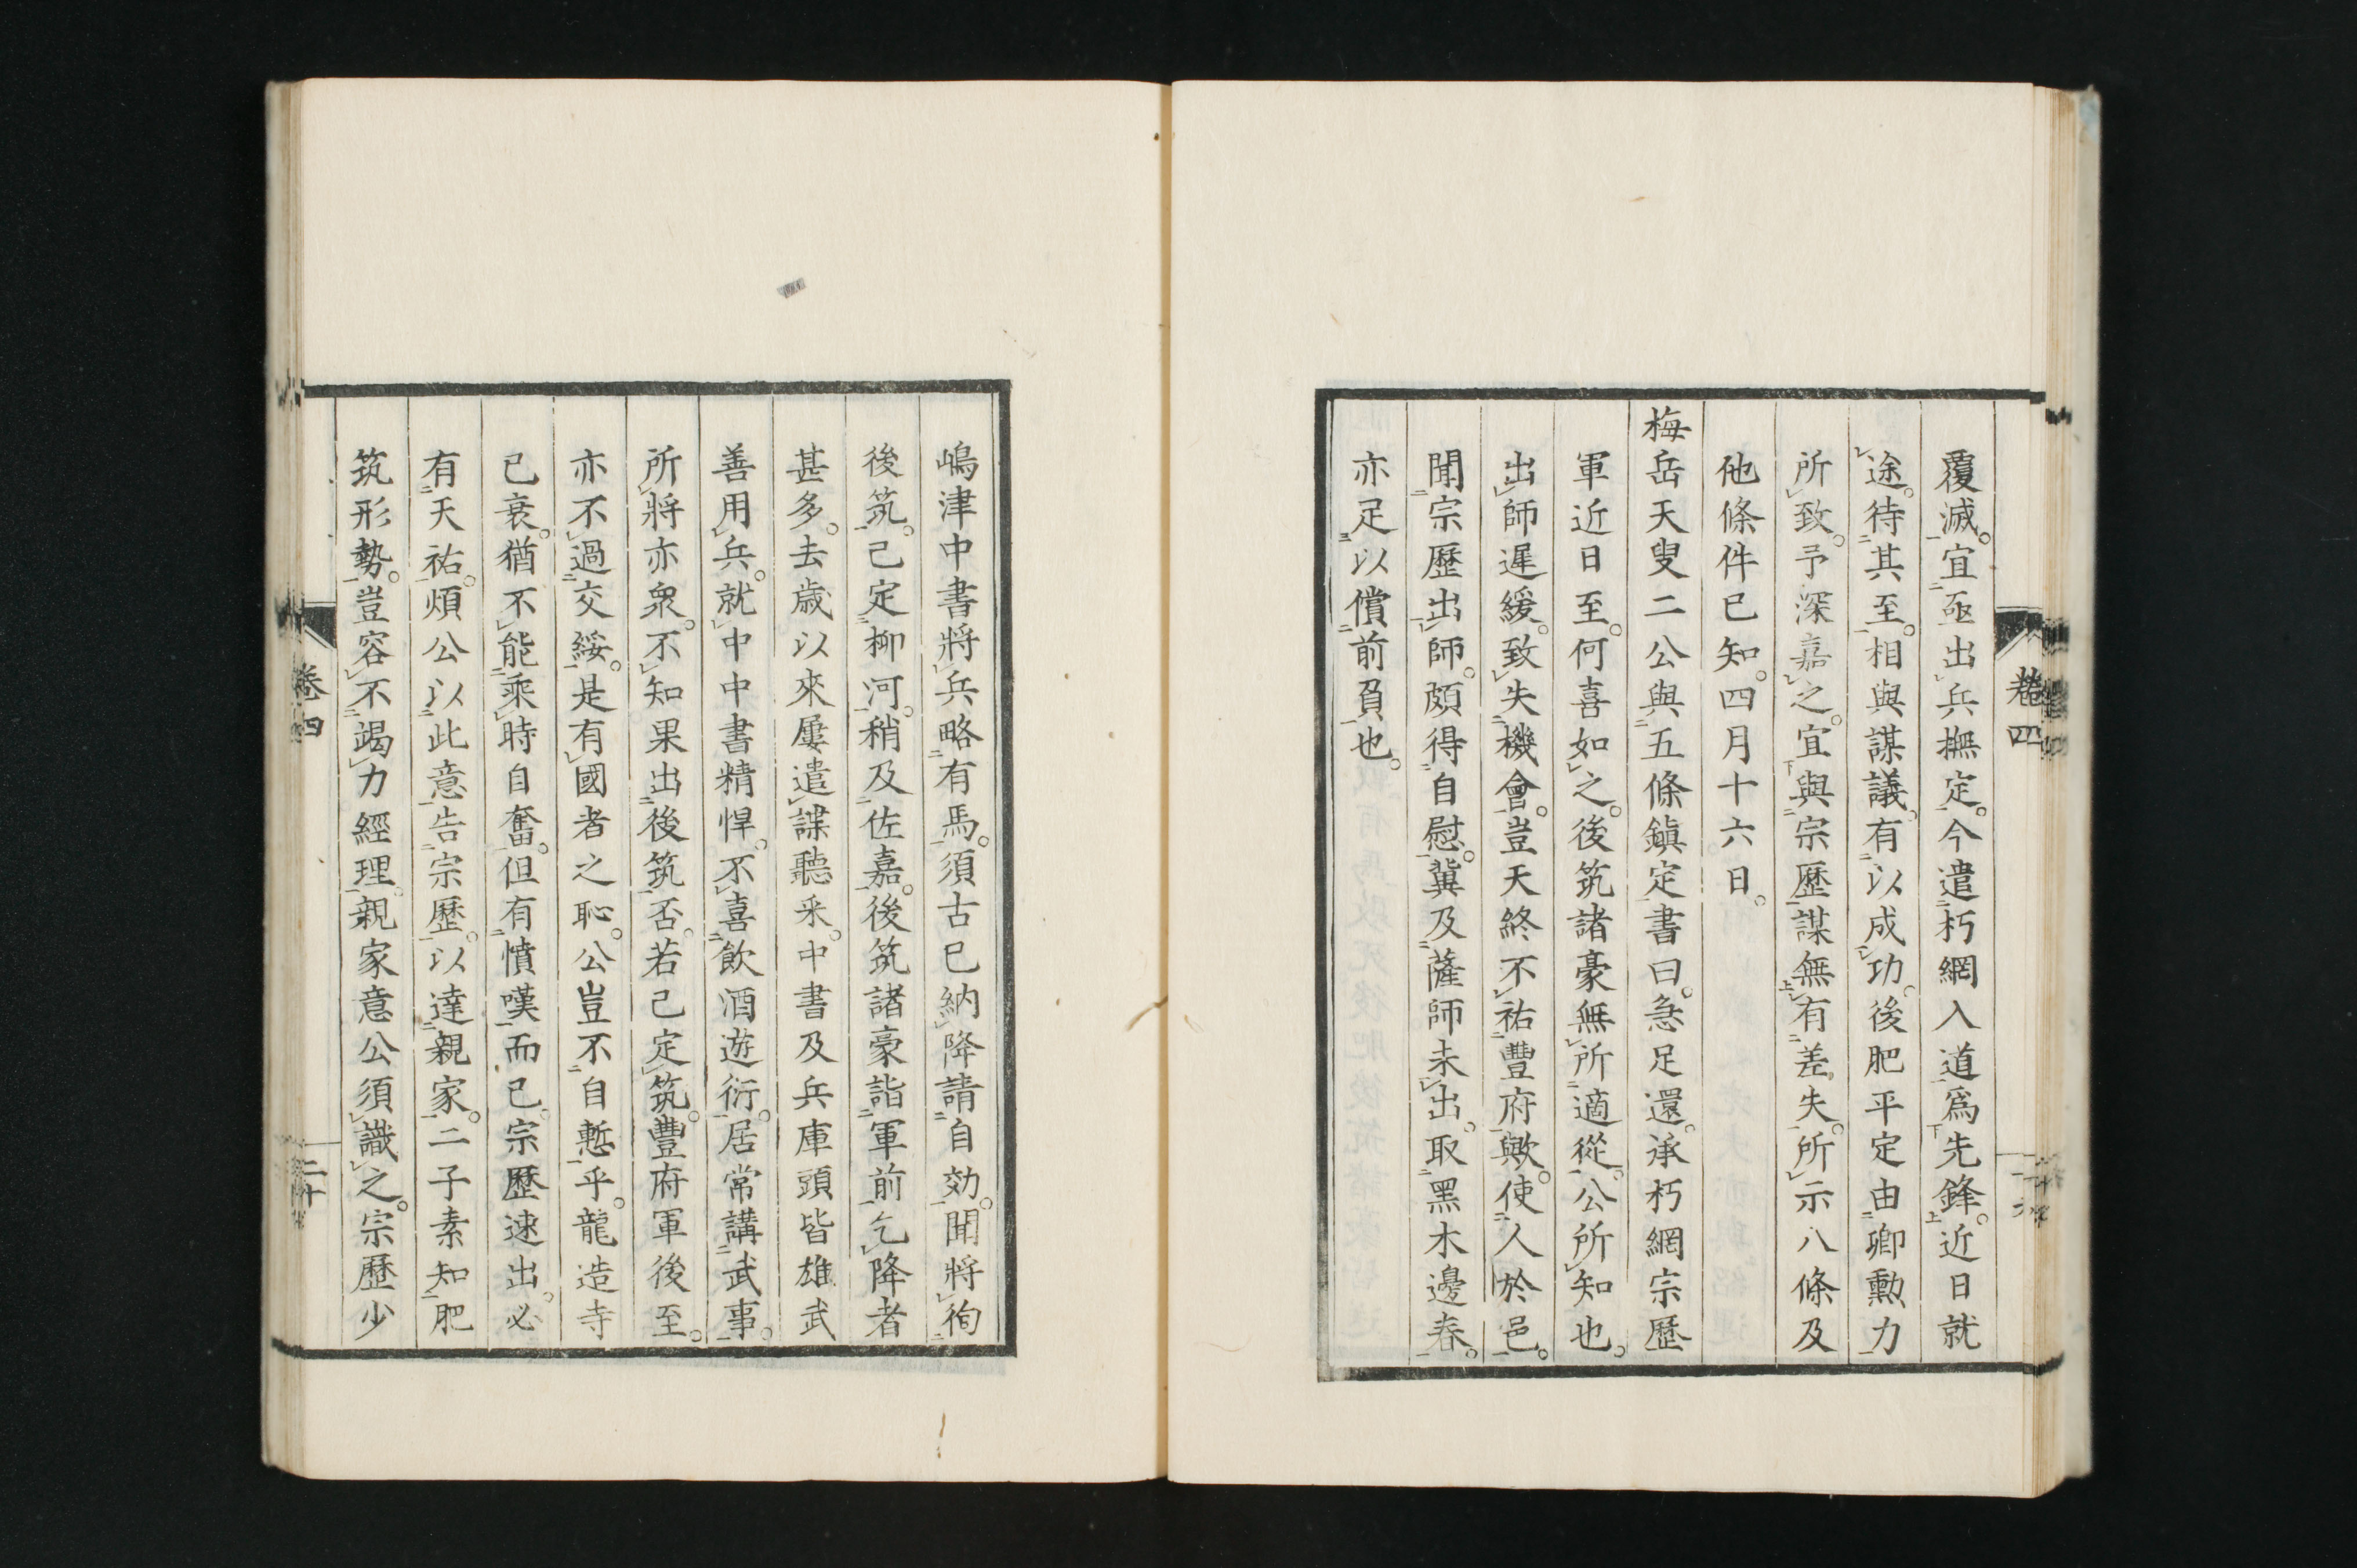 覆滅。宜亟出兵撫定。今遣朽網入道爲先鋒。近日就
途。待其至。相與謀議。有以成功。後肥平定由卿勳力
所致。予深嘉之。宜與宗歷謀無有差失。所示八條及
他條件已知。四月十六日。
梅岳天叟二公與五條鎭定書曰。急足還。承朽網宗歷
軍近日至。何喜如之。後筑諸豪無所適從。公所知也。
出師遲緩。致失機會。豈天終不祐豐府歟。使人於邑。
聞宗歷出師。頗得自慰。冀及薩師未出。取黑木邊春。
亦足以償前負也。
卷四
嶋津中書將兵略有馬。須古已納降請自効。聞將徇
後筑。己定柳河。稍及佐嘉。後筑諸豪詣軍前乞降者
甚多。去歲以來屢遣諜聽釆。中書及兵庫頭皆雄武
善用兵。就中中書精悍。不喜飲酒遊衍。居常講武事。
所將亦衆。不知果出後筑否。若己定筑。豐府軍後至。
亦不過交綏。是有國者之恥。公豈不自慙乎。龍造寺
已衰。猶不能乘時自奮。但有憤嘆而已。宗歷速出。必
有天祐。煩公以此意告宗歷。以達親家。二子素知肥
筑形勢。豈容不竭力經理。親家意公須識之。宗歷少
卷四
二十